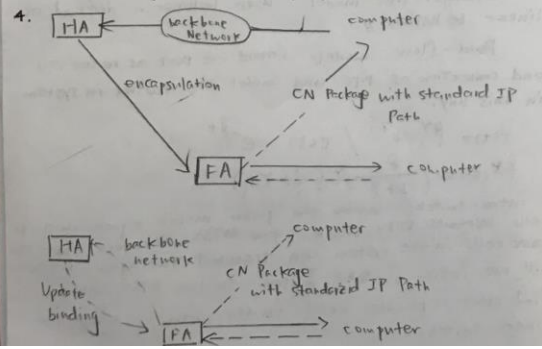 4.
HA
backbone
Network
computer
encapsulation
CN Package with standard IP
Path
FA
computer
HA
backbone
network
computer
CN Package
with standard IP Path
Update
binding
FA
computer